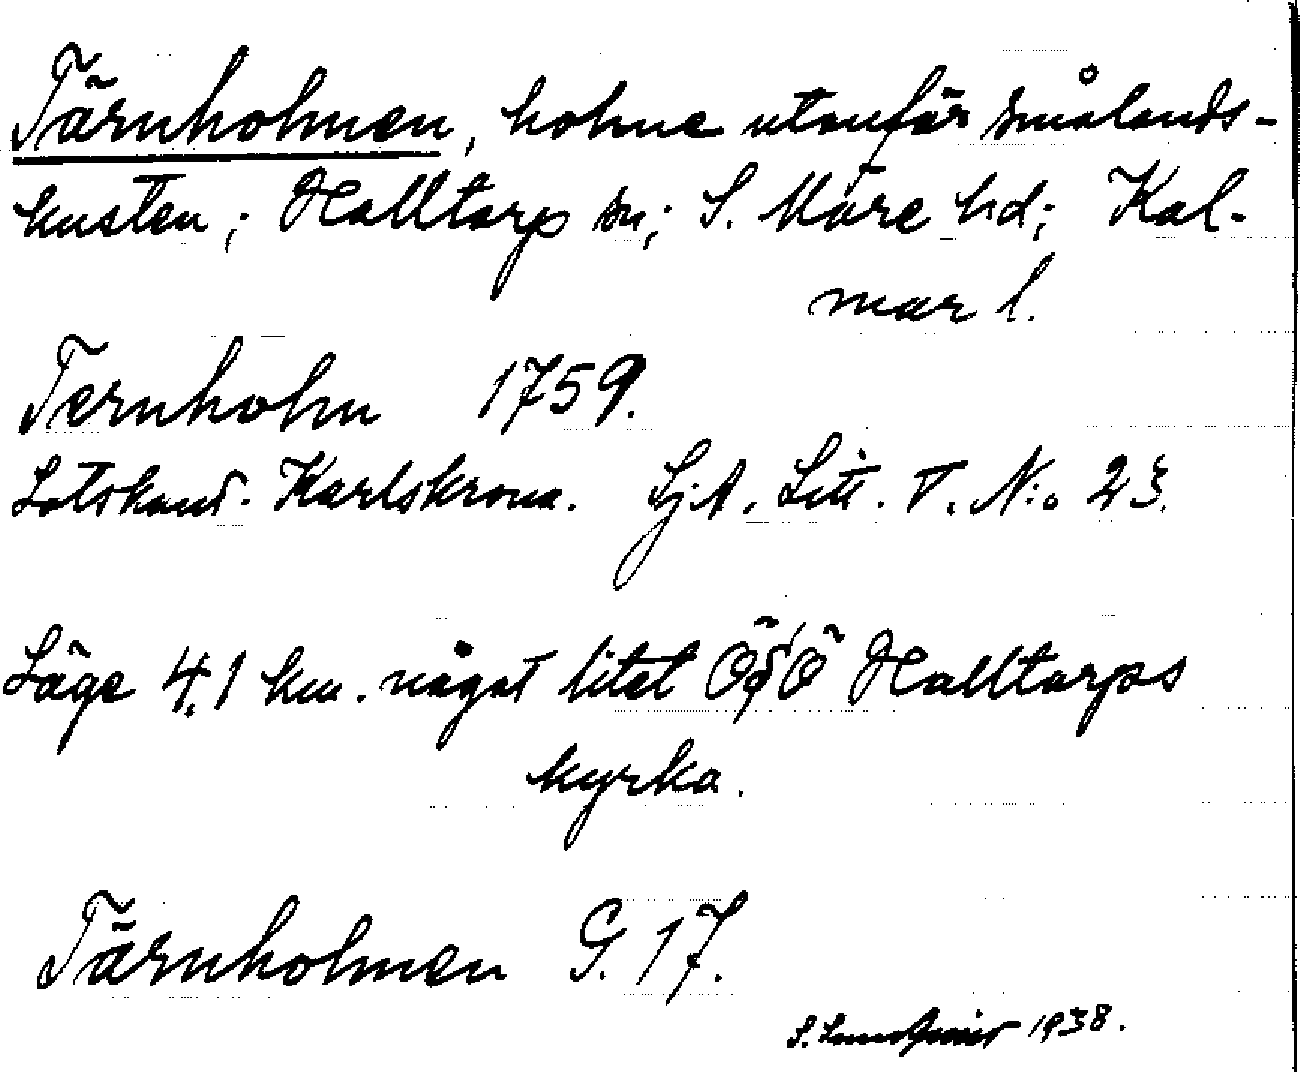 Tärnholmen, holme utanför smålands-
kusten; Halltorp sn; S. Möre hd; Kal-
mar l.
Ternholm 1759.
Lotskont. Karlskrona. Sj.A. Litt. T. N:o 23.
Läge 4,1 km. något litet ÖsÖ Halltorps
kyrka.
Tärnholmen G. 17.
S. 1938.